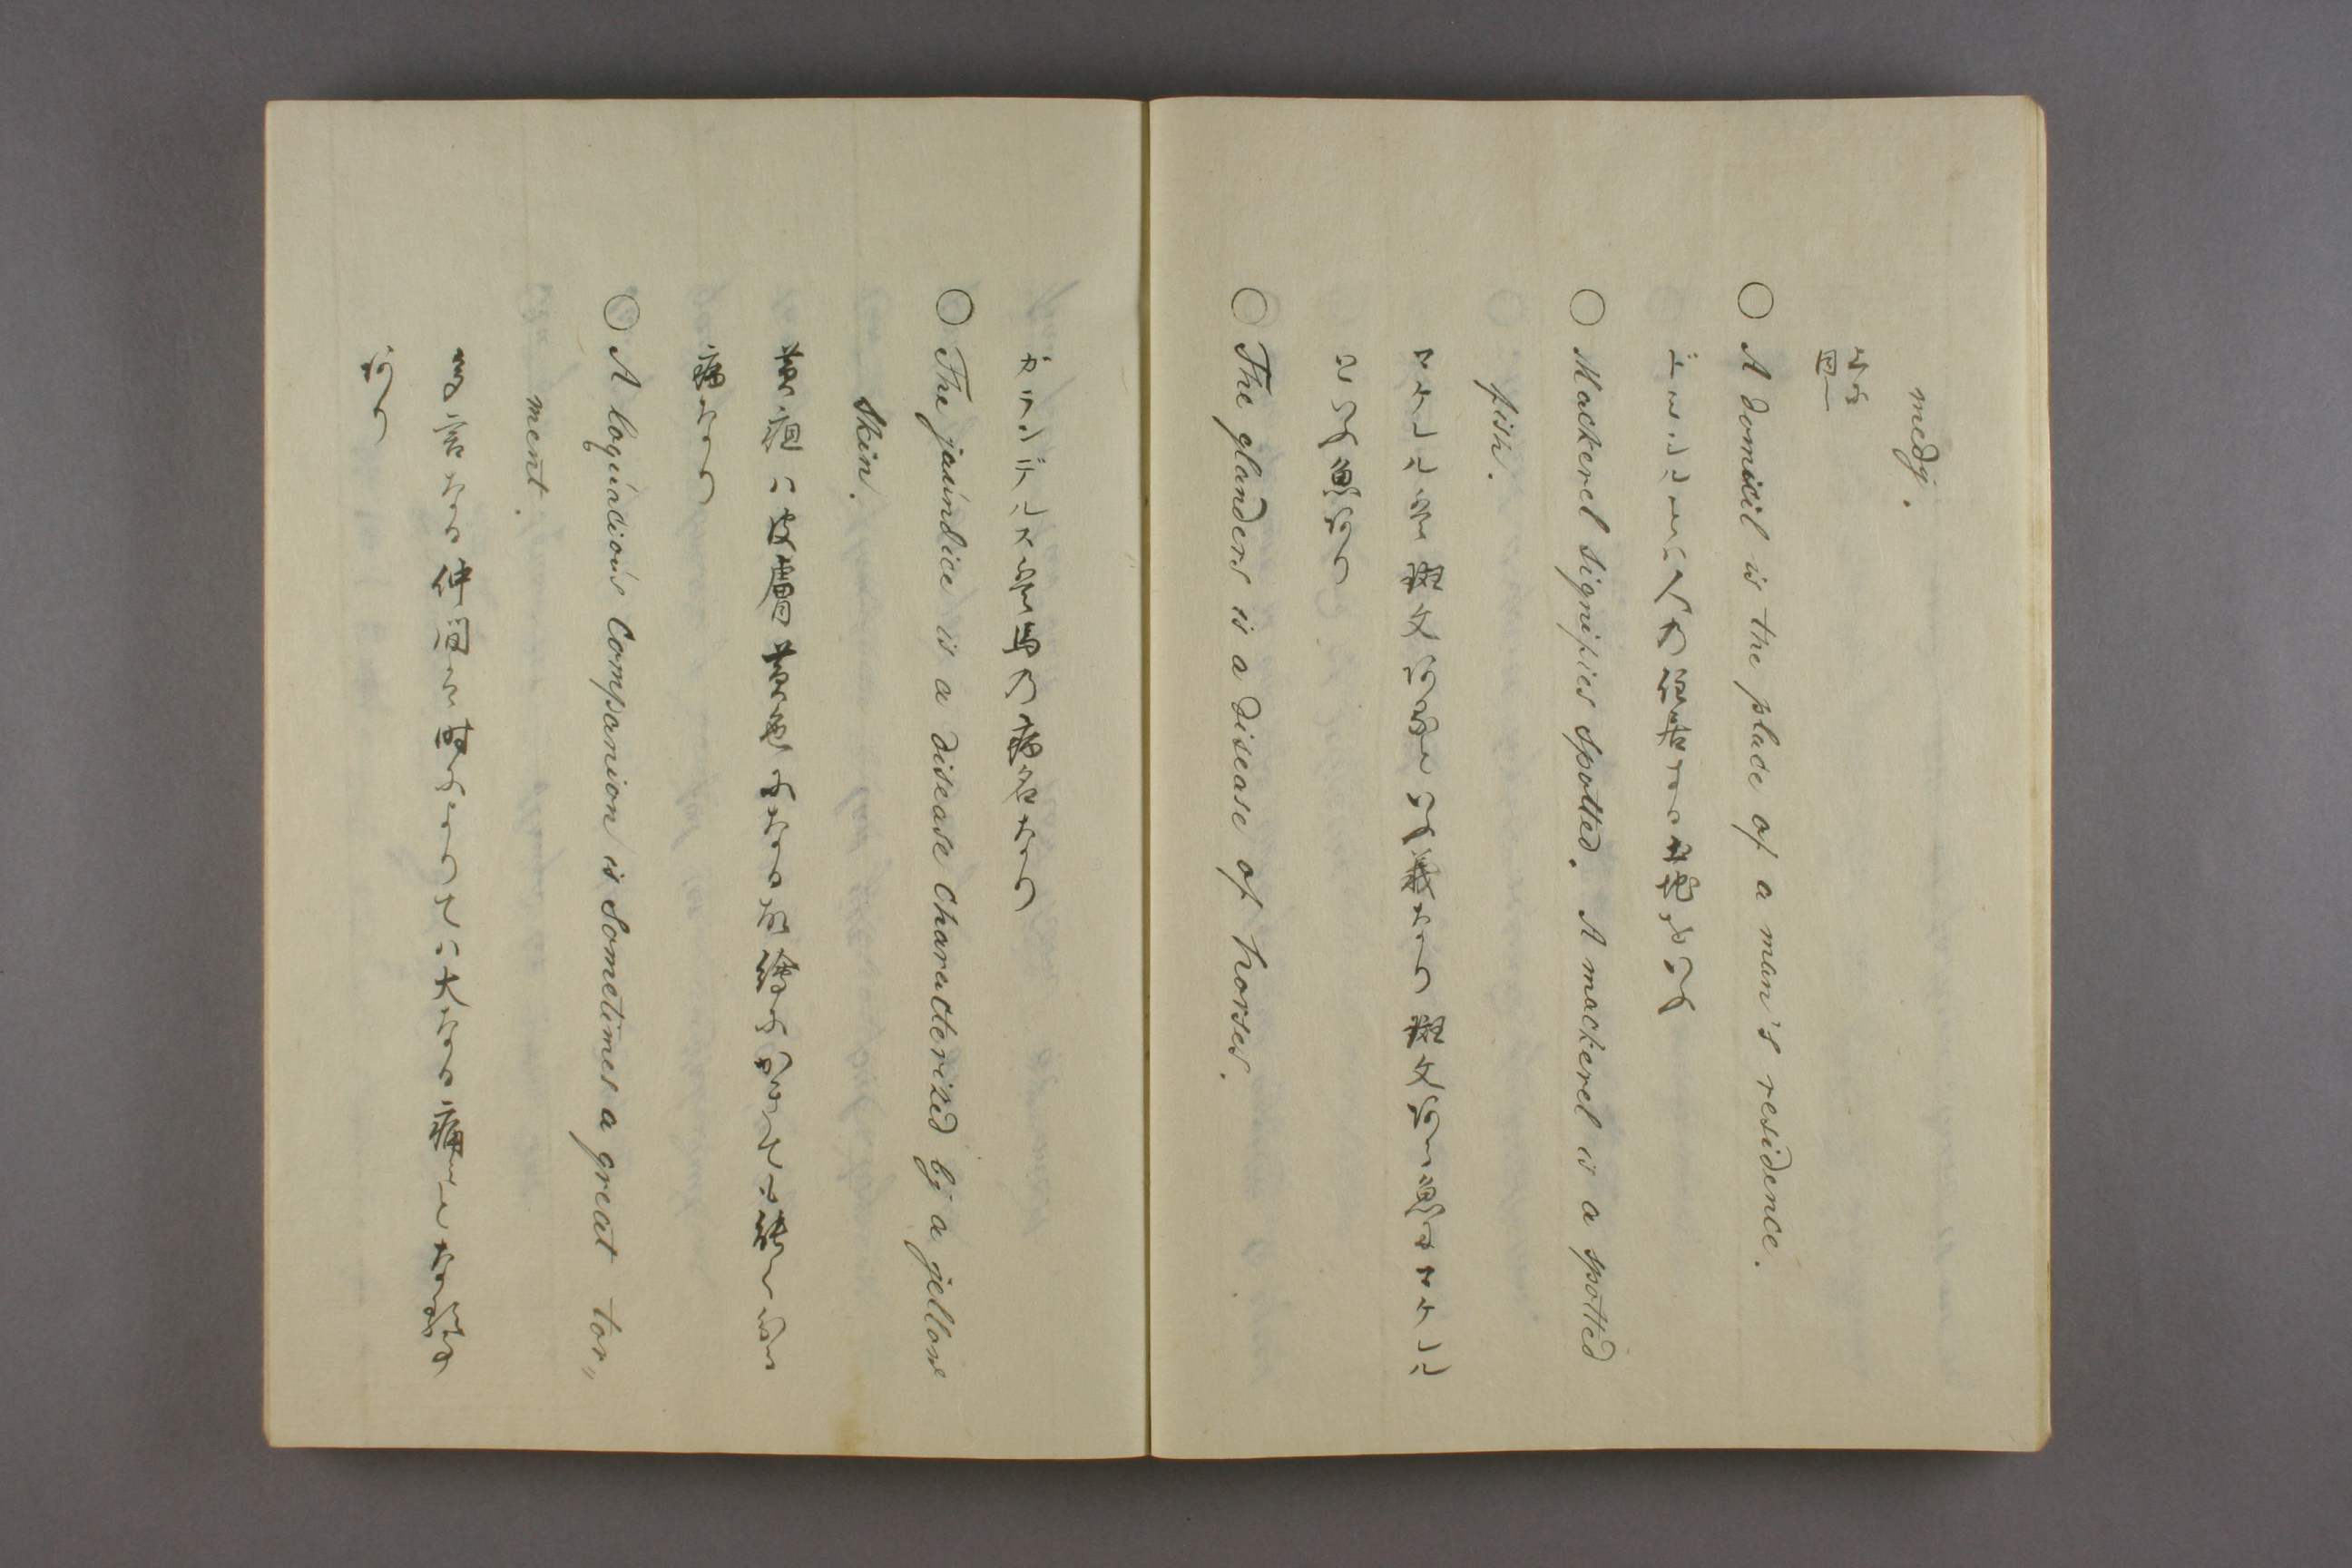 medy.
上ニ
同し
○ A domicil is the place of a man's residence.
人乃住居する土地をいふ
○ Mackerel signifies spotted. A mackerel is a spotted
fish.
マケレル者斑文有るといふ義なり斑文有し魚をマケレル
といふ魚有り
○ The glanders is a disease of horses.
ガランデルス者馬乃病名なり
○ The jaundice is a disease characterized by a jellow
skin.
黄疸ハ皮膚黄色になる故
病なり
○ A loquacious companion is sometimes a great tor„
ment.
多言なる仲間者時によりてハ大なる痛しとなる
有り